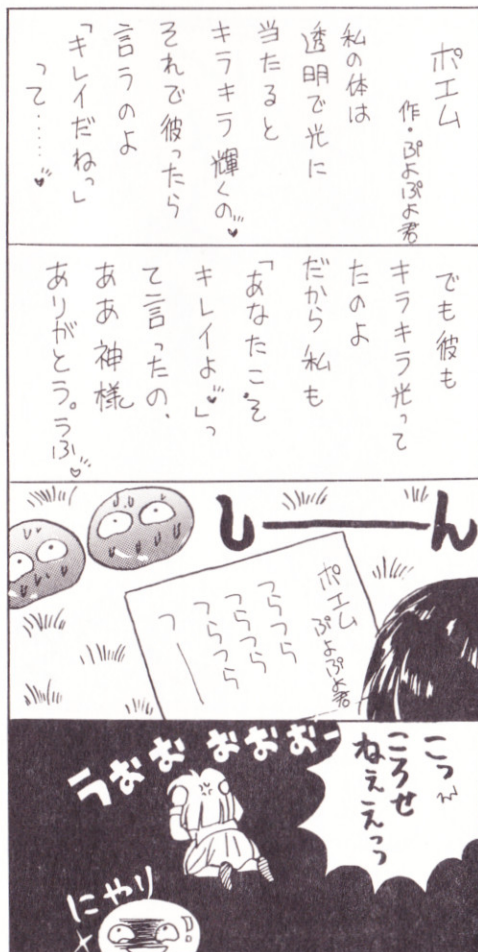 ポエム
作・ぷよぷよ君
私の体は
透明で光に
当たると
キラキラ輝くの♥
それで彼ったら
言うのよ
「キレイだねっ」
って……♥
でも彼も
キラキラ光って
たのよ
だから私も
「あなたこそ
キレイよ」っ
て言ったの、
ああ神様
ありがとう。うふ♥
しーん
ポエム
ぷよぷよ君
つらつら
つらつら
つらつら
つ――
こっ
ころせ
ねぇえっっ
うおぉおぉおー
にやり